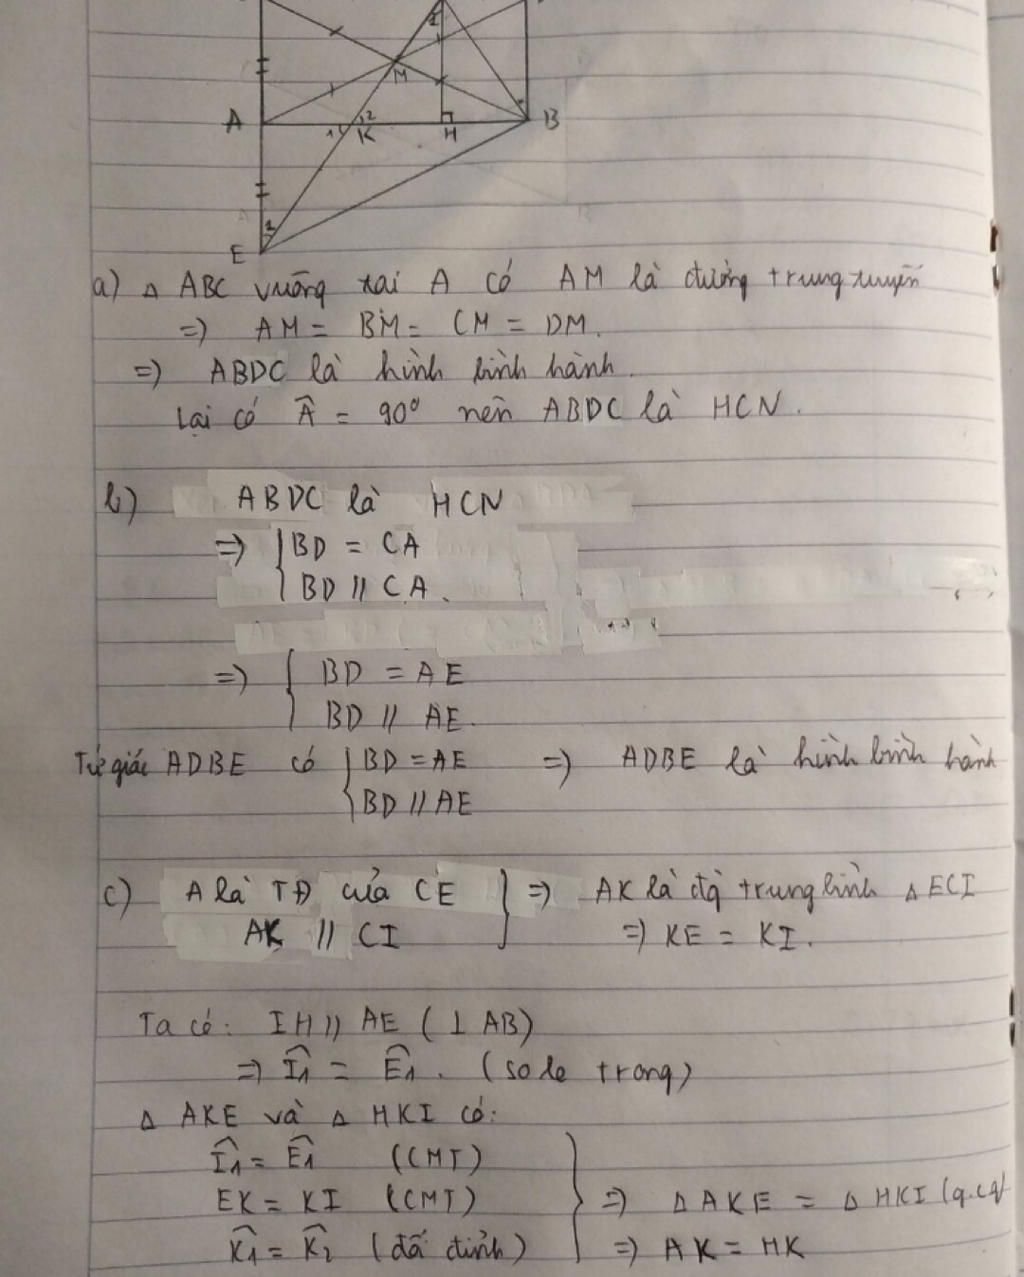 I
M
A
1 2
K
H
B
1
E
a) Δ ABC vuông tại A có AM là đường trung tuyến
=> AM = BM = CM = DM.
=> ABDC là hình bình hành.
Lại có Â = 90° nên ABDC là HCN.
b) ABDC là HCN
=> { BD = CA
BD // CA.
=> { BD = AE
BD // AE.
Tứ giác ADBE có { BD = AE => ADBE là hình bình hành
BD // AE
c) A là TĐ của CE } => AK là đg trung bình Δ ECI
AK // CI => KE = KI.
Ta có: IH // AE (⊥ AB)
=> Î1 = Ê1. (so le trong)
Δ AKE và Δ HKI có:
Î1 = Ê1 (CMT)
EK = KI (CMT) } => Δ AKE = Δ HKI (g.c.g)
K̂1 = K̂2 (đđ đỉnh) => AK = HK